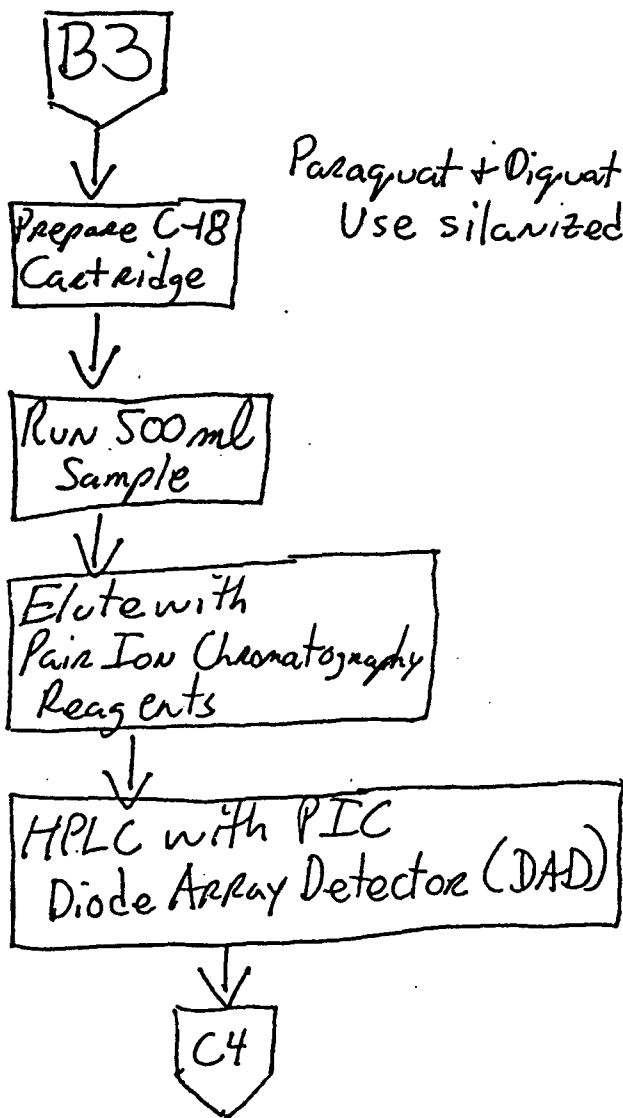 B3
Paraquat + Diquat
Use silanized
Prepare C-18
Cartridge
Run 500 ml
Sample
Elute with
Pair Ion Chromatography
Reagents
HPLC with PIC
Diode Array Detector (DAD)
C4